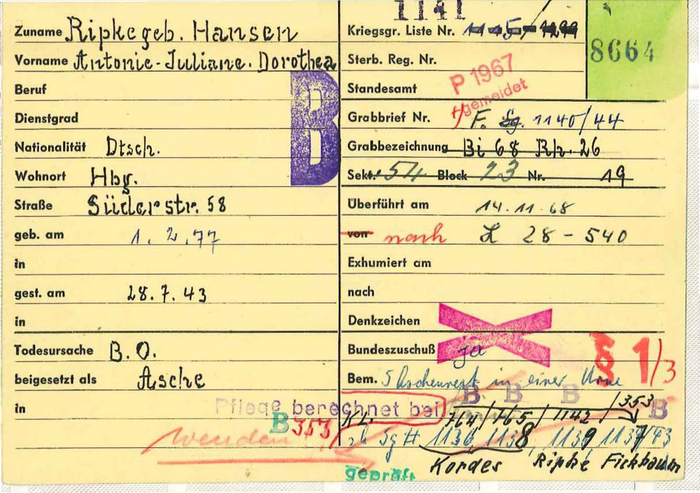 Zuname Ripke geb. Hansen
Vorname Antonie-Juliane. Dorothea
Beruf
Dienstgrad
Nationalität Dtsch.
Wohnort Hbg.
Straße Süderstr. 58
geb. am 1. 2. 77
in
gest. am 28. 7. 43
in
Todesursache B. O.
beigesetzt als Asche
in
B
1141
Kriegsgr. Liste Nr.
8664
Sterb. Reg. Nr.
P 1967
gemeldet
Standesamt
Grabbrief Nr. F. Sg. 1140/44
Grabbezeichnung Bi 68 Rh. 26
Sekt. 54 Block 23 Nr. 19
Überführt am 14. 11. 68
von nach 28-540
Exhumiert am
nach
Denkzeichen
Bundeszuschuß ja
§ 1/3
Bem. 5 Aschenrest in einer Urne
B B B B
Pflege berechnet bei
B 353
764/765/1142/353
1138 1139
wenden
Kordes Ripke Fickbaum
geprüft